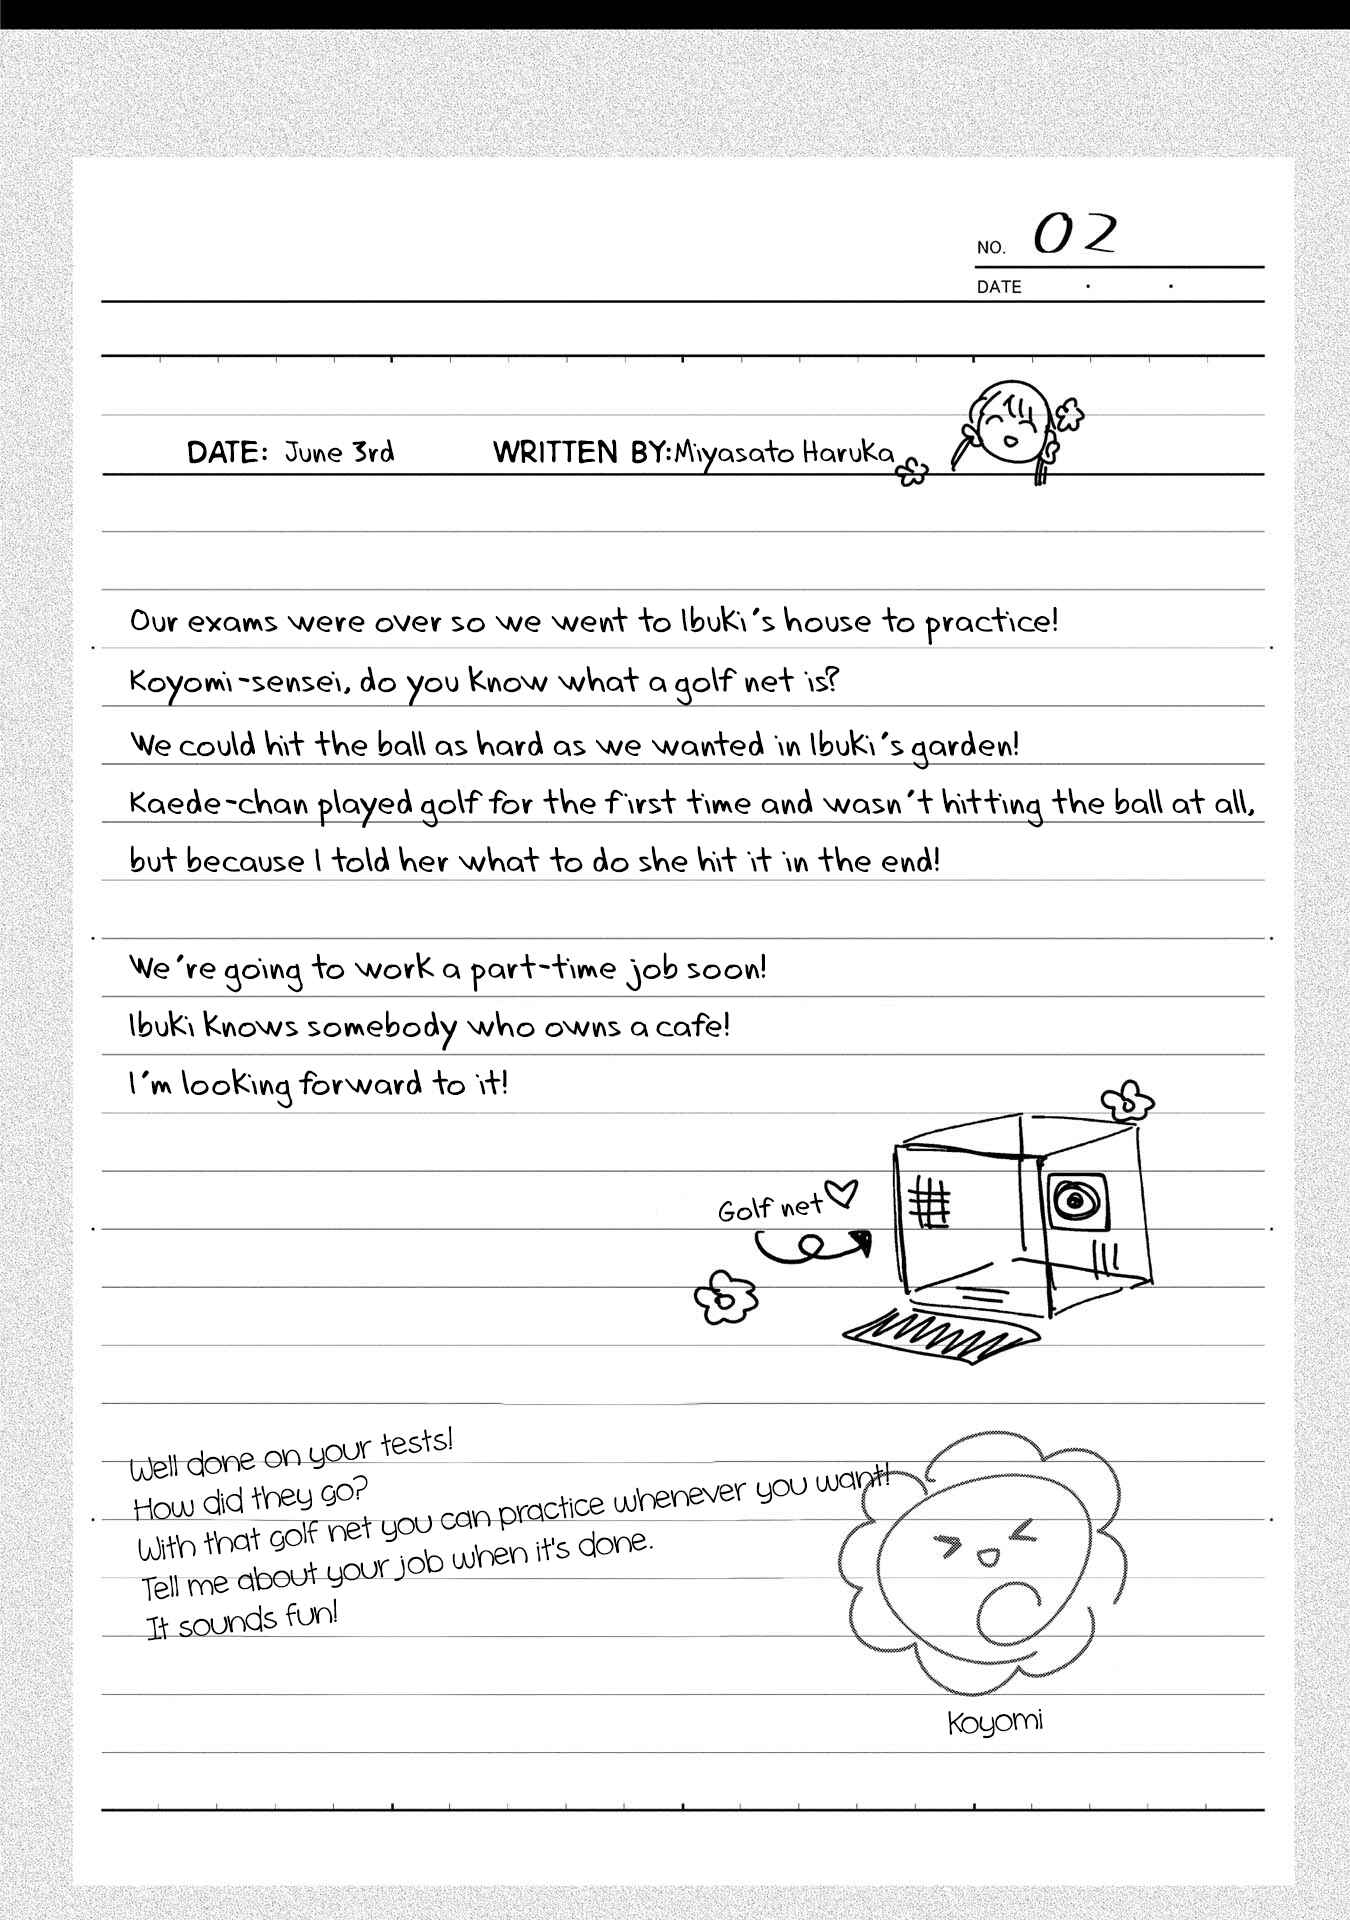 NO. 02
DATE . .
DATE: June 3rd WRITTEN BY:Miyasato Haruka
Our exams were over so we went to Ibuki's house to practice!
Koyomi-sensei, do you know what a golf net is?
We could hit the ball as hard as we wanted in Ibuki's garden!
Kaede-chan played golf for the first time and wasn't hitting the ball at all,
but because I told her what to do she hit it in the end!
We're going to work a part-time job soon!
Ibuki knows somebody who owns a cafe!
I'm looking forward to it!
Golf net
Well done on your tests!
How did they go?
With that golf net you can practice whenever you want!
Tell me about your job when it's done.
It sounds fun!
Koyomi